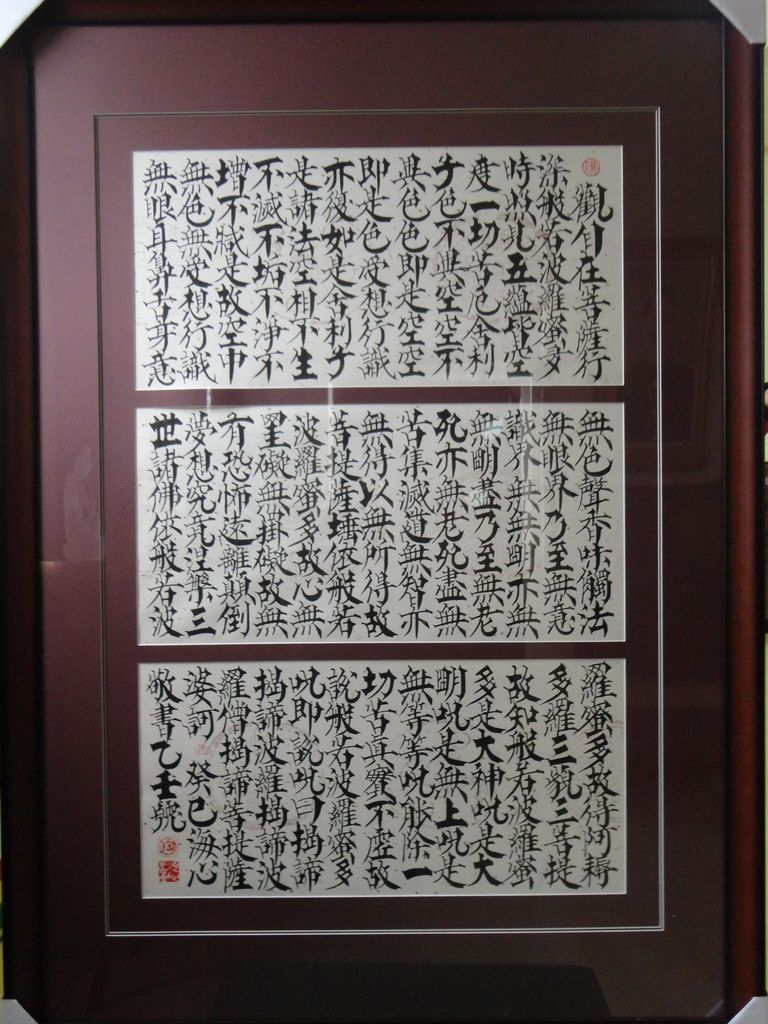 觀自在菩薩行
深般若波羅蜜多
時照見五蘊皆空
度一切苦厄舍利
子色不異空空不
異色色即是空空
即是色受想行識
亦復如是舍利子
是諸法空相不生
不滅不垢不淨不
增不減是故空中
無色無受想行識
無眼耳鼻舌身意
無色聲香味觸法
無眼界乃至無意
識界無無明亦無
無明盡乃至無老
死亦無老死盡無
苦集滅道無智亦
無得以無所得故
菩提薩埵依般若
波羅蜜多故心無
罣礙無掛礙故無
有恐怖遠離顛倒
夢想究竟涅槃三
世諸佛依般若波
羅蜜多故得阿耨
多羅三藐三菩提
故知般若波羅蜜
多是大神呪是大
明呪是無上呪是
無等等呪能除一
切苦真實不虛故
說般若波羅蜜多
呪即說呪曰揭諦
揭諦波羅揭諦波
羅僧揭諦菩提薩
婆訶 癸巳海心
敬書乙壬號